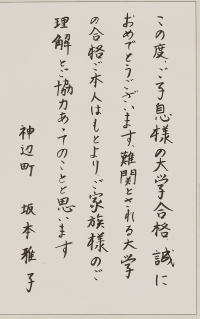 この度、ご子息様の大学合格 誠に
おめでとうございます。難関とされる大学
の合格ご本人はもとよりご家族様のご
理解とご協力あってのことと思います
神辺町 坂本雅子